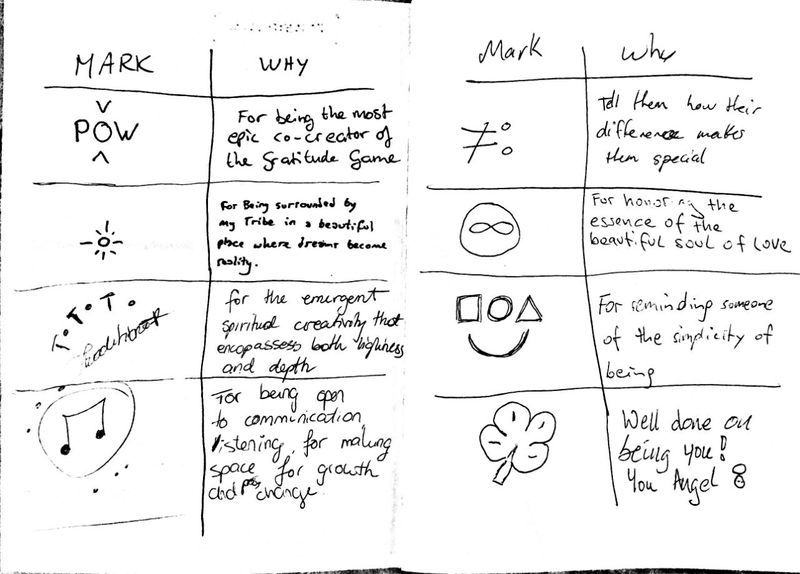 MARK WHY
POW
For being the most
epic co-creator of
the Gratitude Game
For Being surrounded by
my Tribe in a beautiful
place where dreams become
reality.
for the emurgent
spiritual creativity that
encopassess both highness
and depth
For being open
to communication,
listening, for making
space for growth
and change.
Mark Why
Tell them how their
difference makes
them special
For honoring the
essence of the
beautiful soul of LOVE
For reminding someone
of the simplicity of
being
Well done on
being you!
You Angel